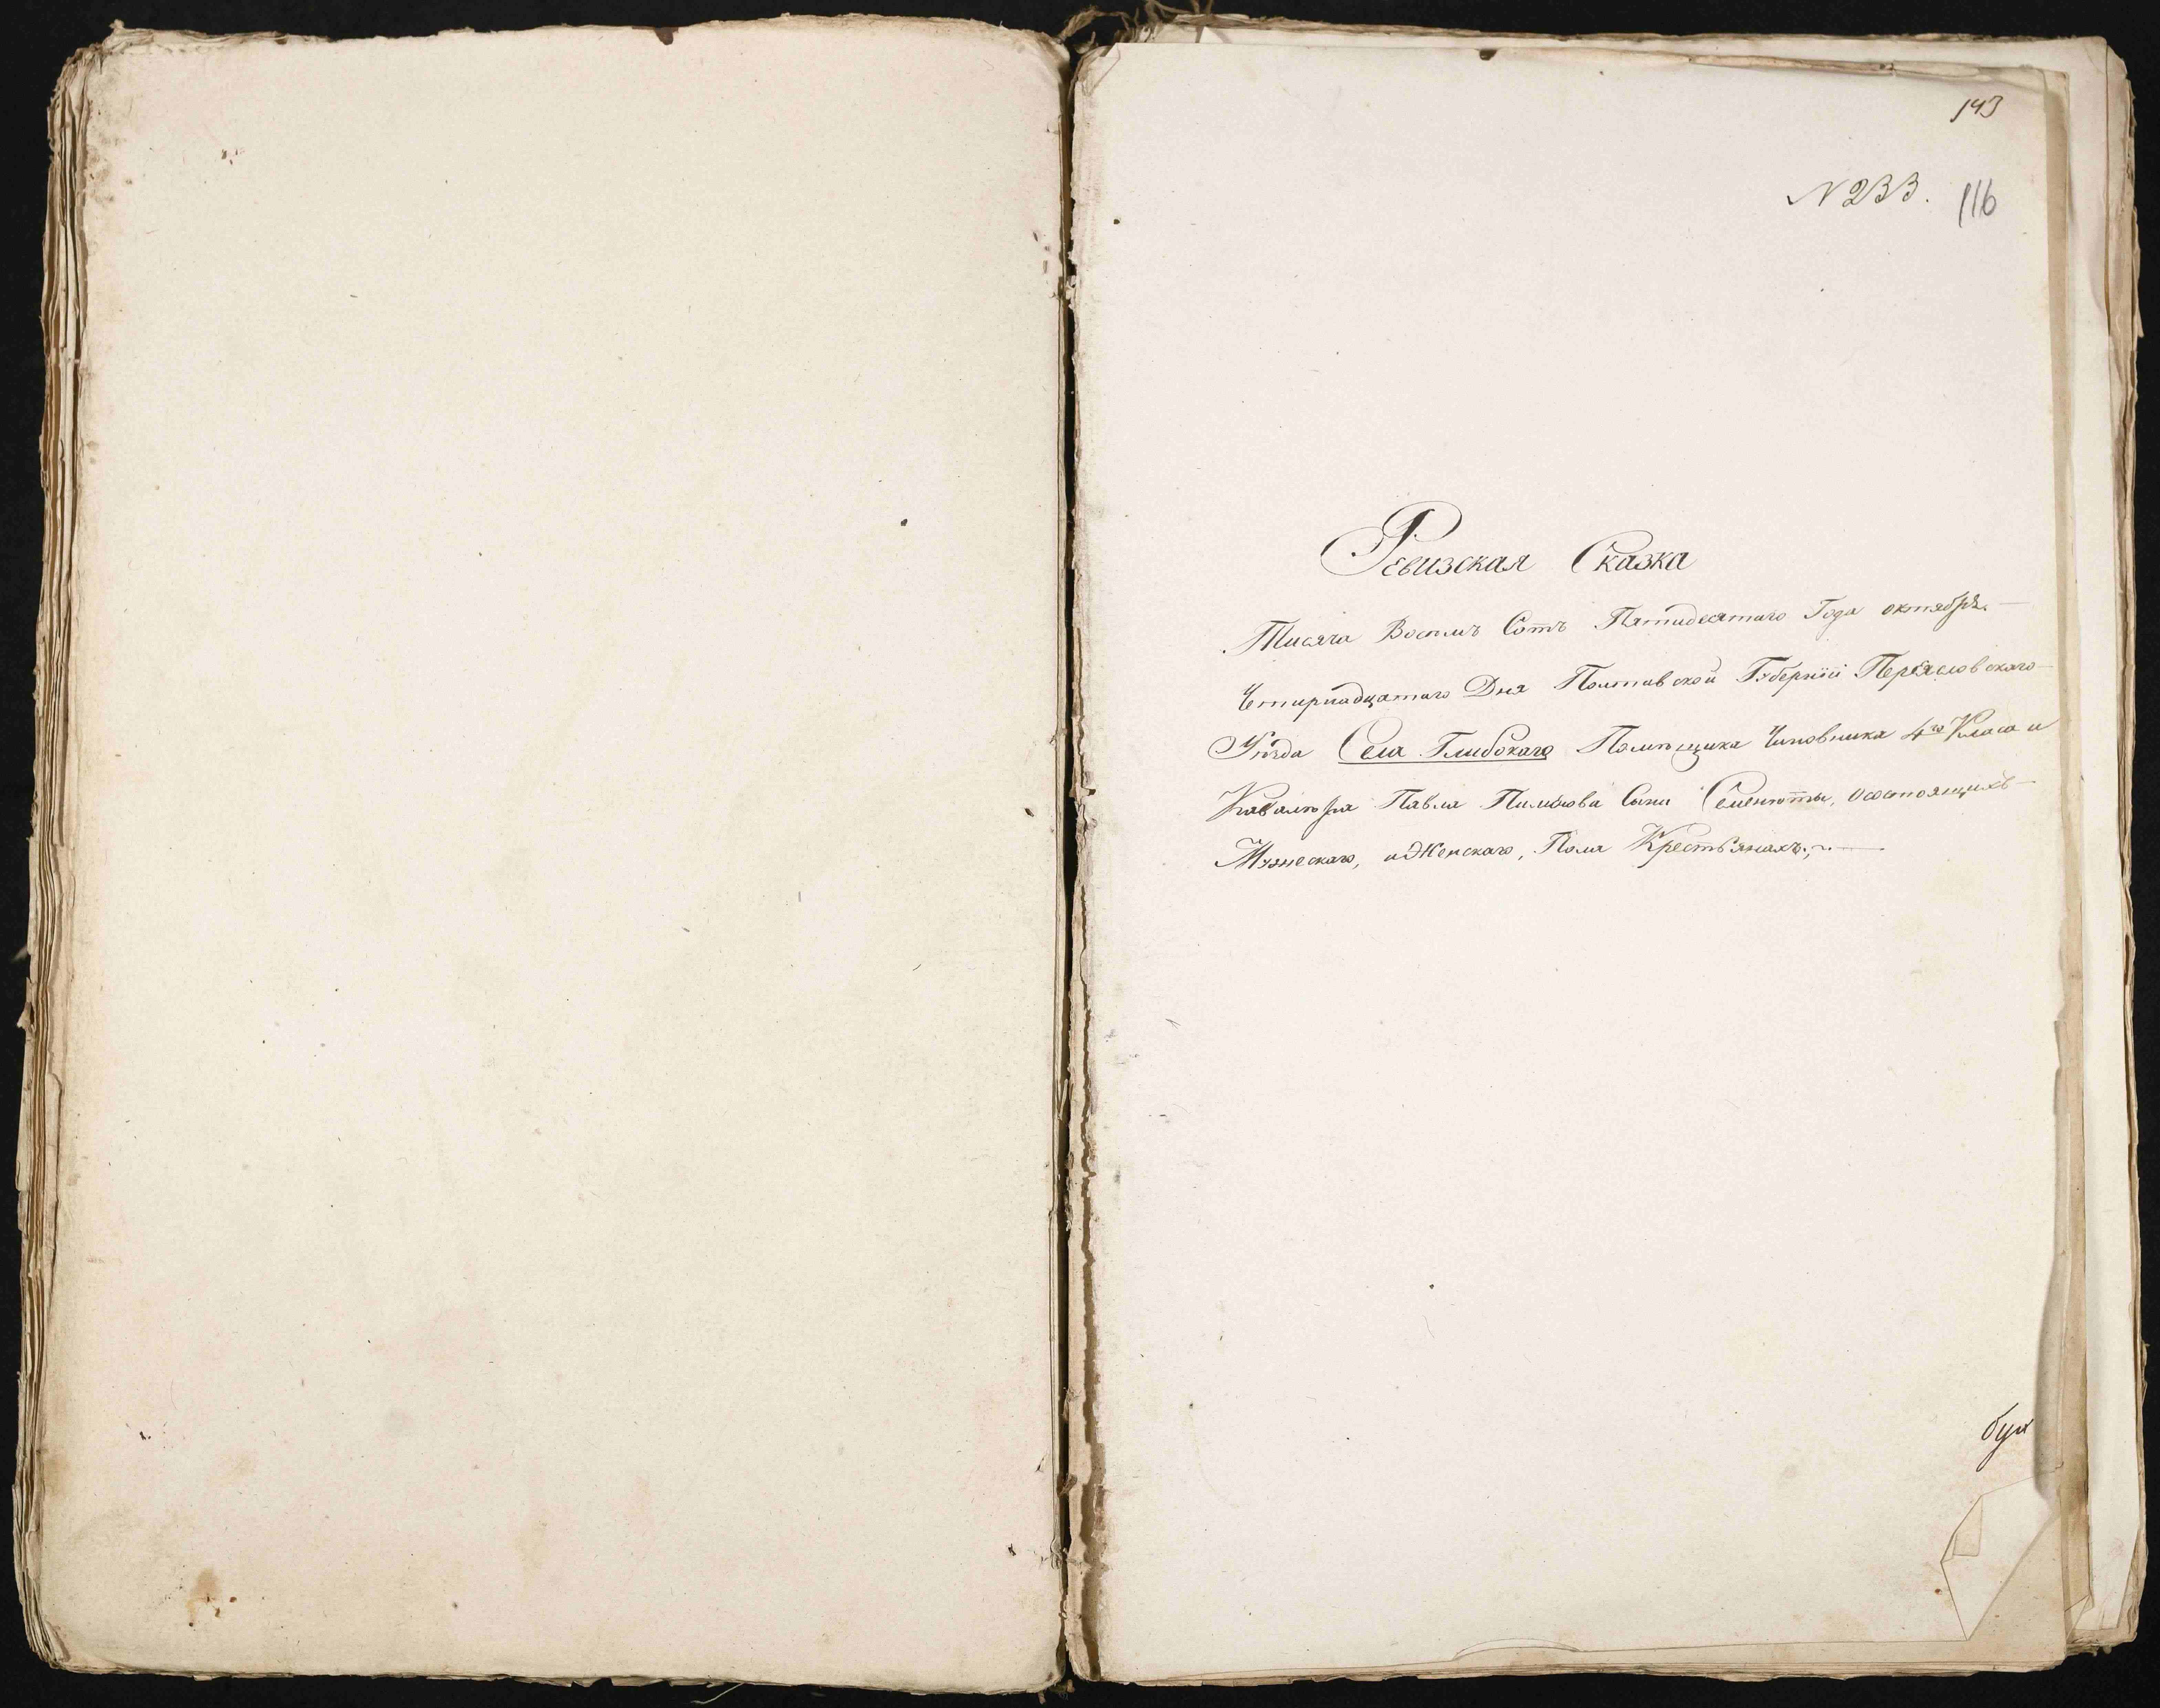 143
N 233. 116
Ревизская Сказка
Тисяча Восемь Сотъ Пятидесятаго Года октября.—
Четирнадцатаго Дня Полтавской Губерніи Переяславскаго
Уѣзда Села Глибокаго Помѣщика Чиновника 4го Класа и
Кавалѣра Павла Сына Сементты, о состоящихъ—
Мужескаго, и Женскаго, Пола Крестьянахъ.